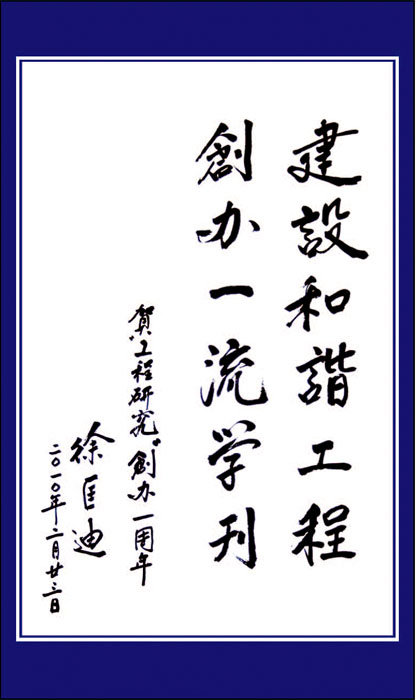 建設和諧工程
創办一流学刊
賀工程研究"創办一周年
徐匡迪
二〇一〇年二月廿三日